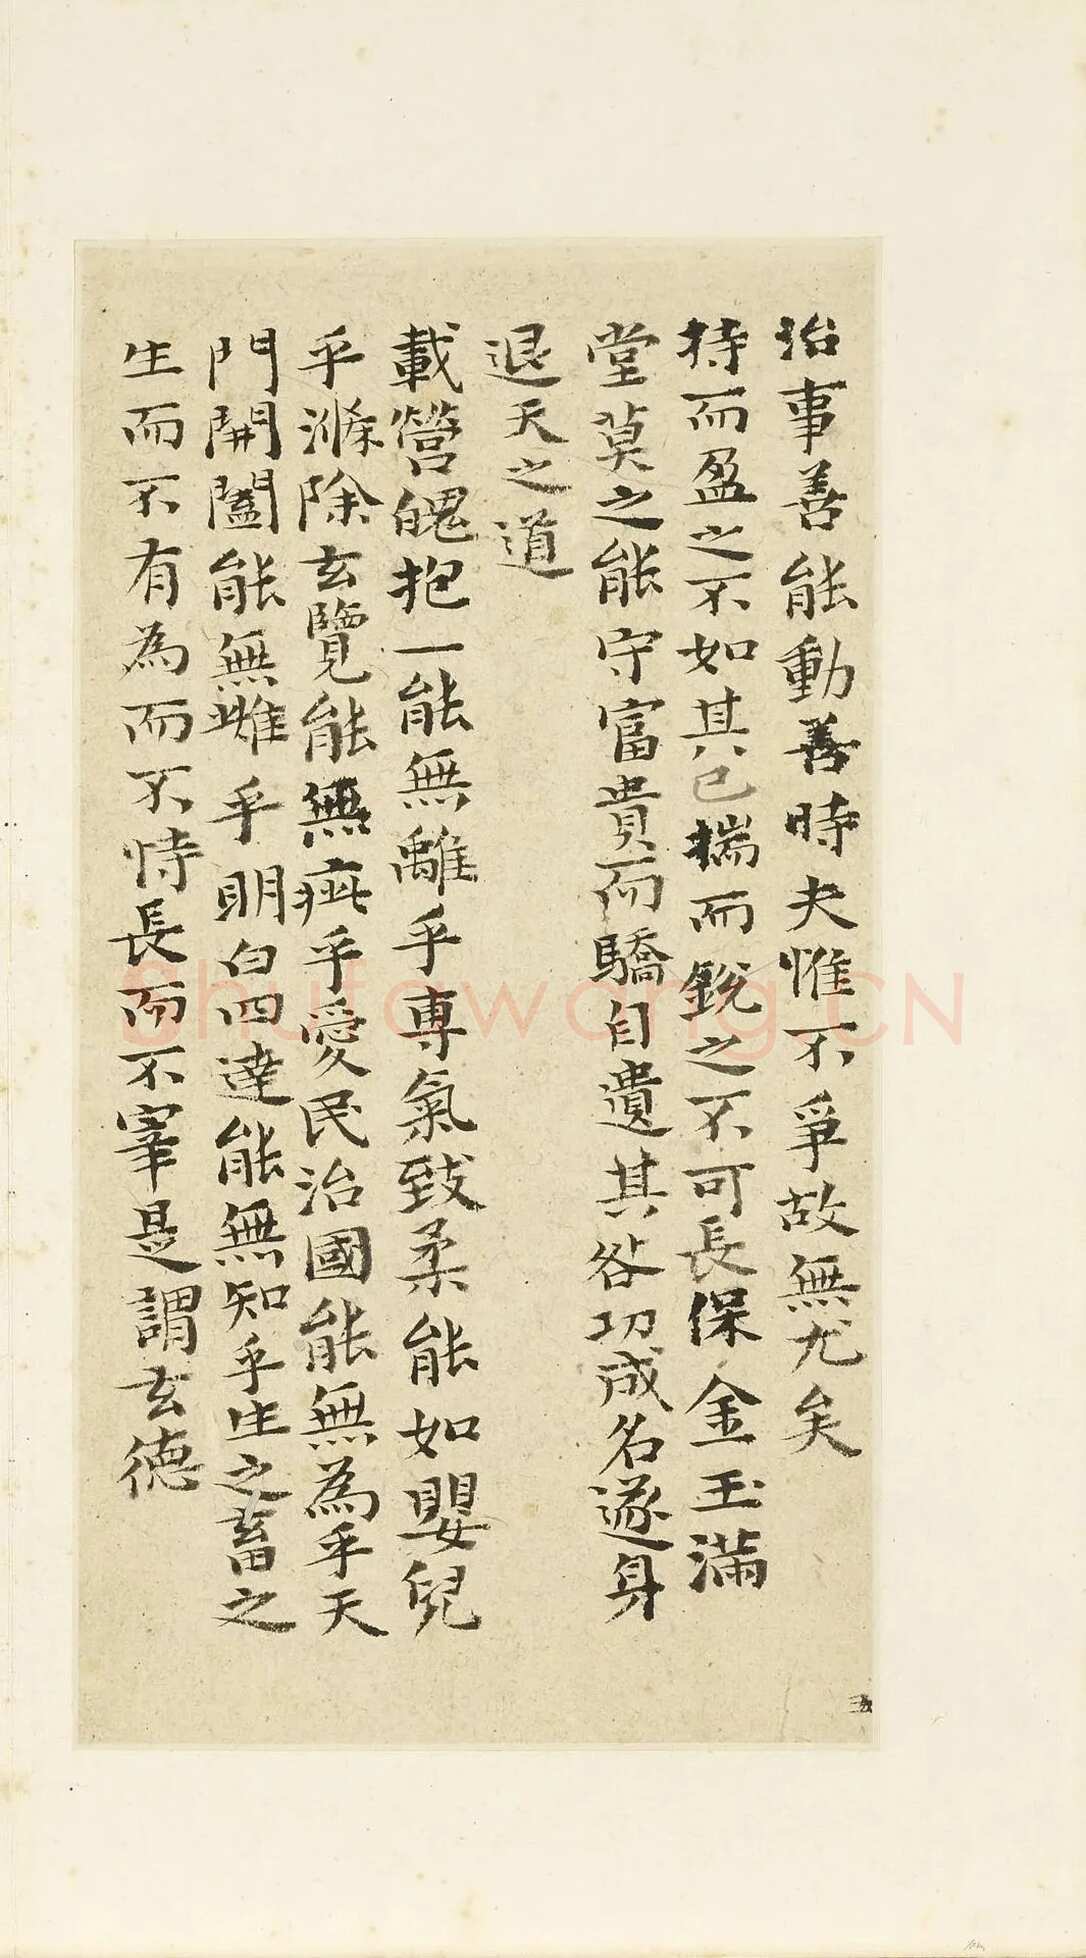 治事善能動善時夫惟不爭故無尤矣
持而盈之不如其已揣而銳之不可長保金玉滿
堂莫之能守富貴而驕自遺其咎功成名遂身
退天之道
載營魄抱一能無離乎專氣致柔能如嬰兒
乎滌除玄覽能無疵乎愛民治國能無為乎天
門開闔能無雌乎明白四達能無知乎生之畜之
生而不有為而不恃長而不宰是謂玄德
五
Shufawang.CN